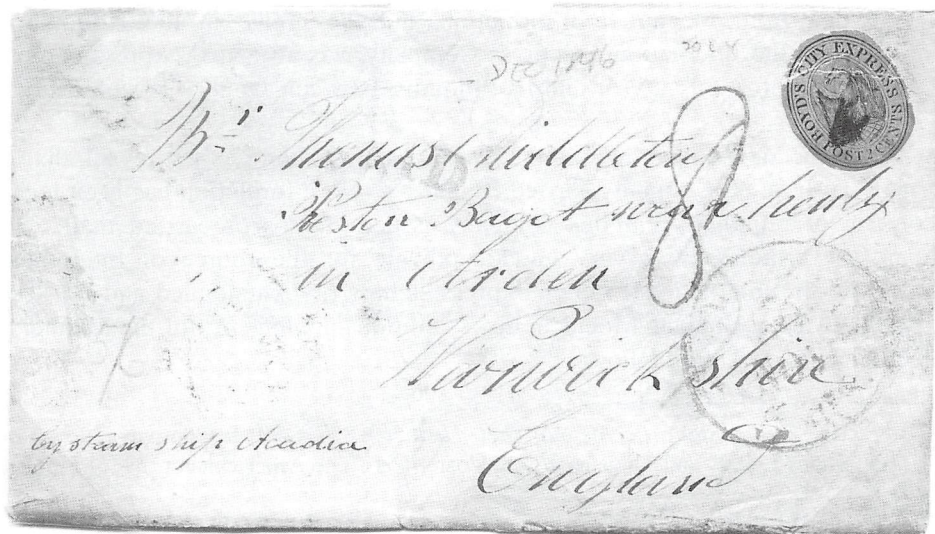 BOYD'S CITY EXPRESS
POST 2 CENTS.
Mr. Thomas Middleton
Preston Bagot near henly
in Arden
8
Warwick shire
England
by steam ship Acadia